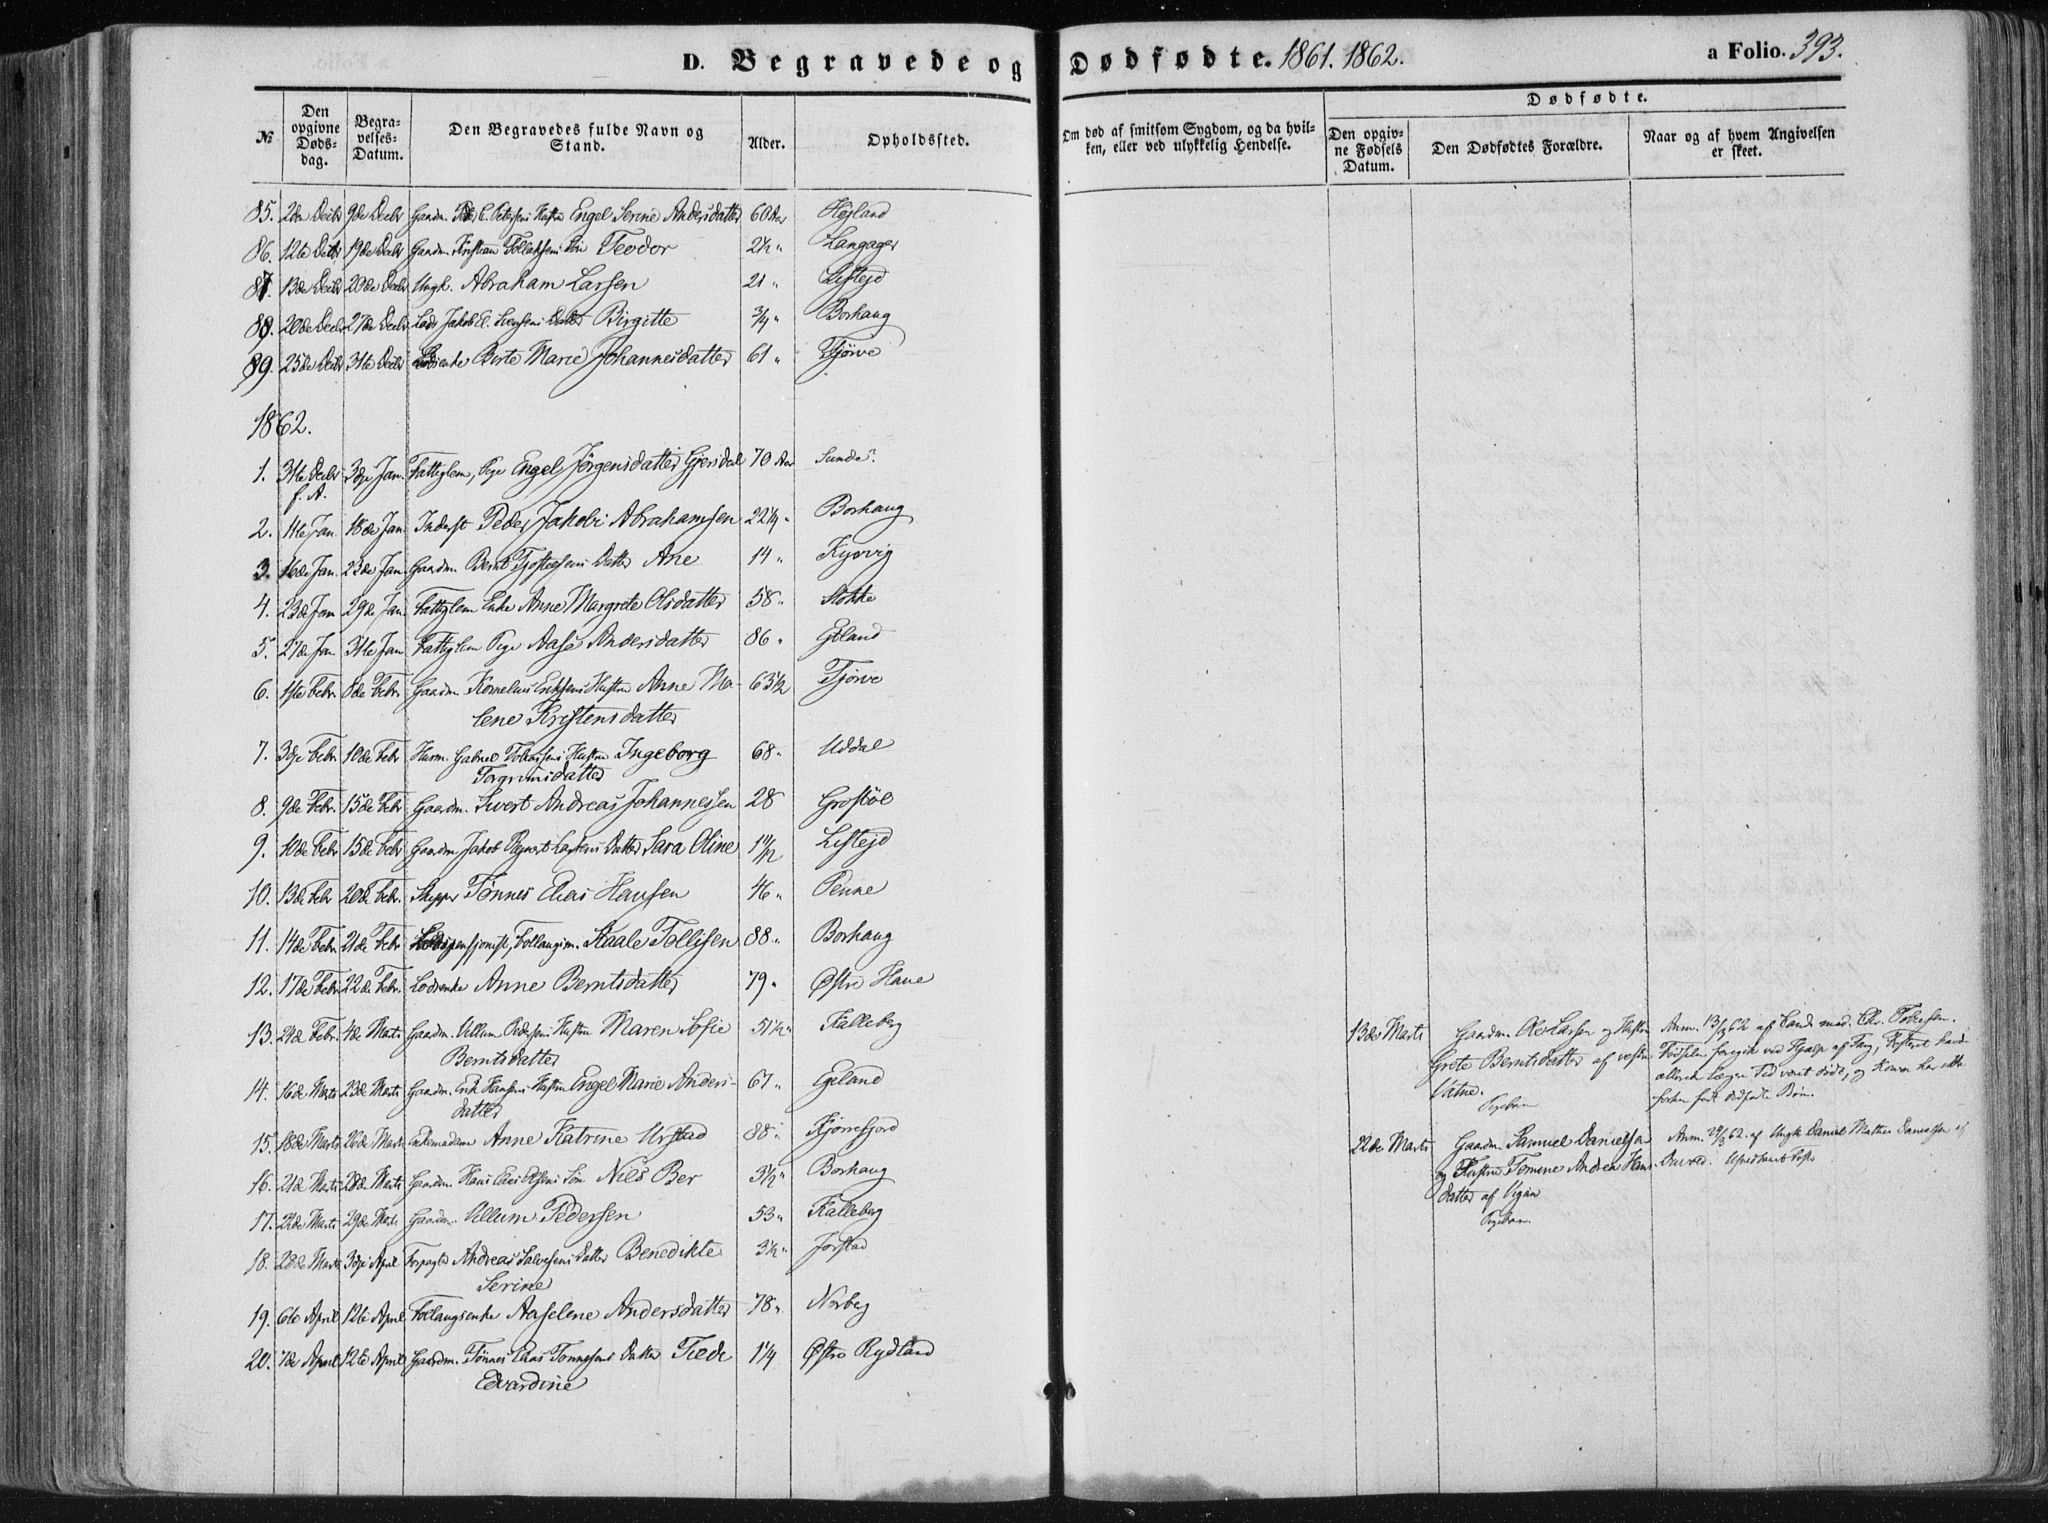 D. Begravede og Dødfødte. 1861. 1862.
a Folio. 393.
№
Den opgivne Døds-dag.
Begra-velses-Datum.
Den Begravedes fulde Navn og Stand.
Alder.
Opholdssted.
Om død af smitsom Sygdom, og da hvil-ken, eller ved ulykkelig Hendelse.
Dødfødte.
Den opgiv-ne Fødsels Datum.
Den Dødfødtes Forældre.
Naar og af hvem Angivelsen er skeet.
85. 2den Decbr 9de Decbr Gaardm. Peder C. Petersens Hustru Engel Serine Andersdatter 60 Aar Højland
86. 12te Decbr 19de Decbr Gaardm. Kristian Tollaksens Søn Teodor 2½ " Langager
87. 13de Decbr 20de Decbr Ungk. Abraham Larsen 21 " Listejd
88. 20de Decbr 27de Decbr Lods Jakob E. Svensens Datter Birgitte ¾ " Borhaug
89. 25de Decbr 31te Decbr Lodsenke Berte Marie Johannesdatter 61 " Tjørve
1862.
1. 31te Decbr 3dje Jan. Fattiglem, Pige Engel Jørgensdatter Gjersdal 70 Aar Sunde.
f. A.
2. 11te Jan 18de Jan Inderst Peder Jakobi Abrahamsen 22¼ " Borhaug
3. 16de Jan. 23de Jan. Gaardm. Bernt Tjostelsens Datter Ane 14 " Kjørvig
4. 23de Jan 29de Jan Fattiglem Enke Anne Margrete Olsdatter 58 " Stokke
5. 27de Jan 31te Jan Fattiglem Pige Aase Andersdatter 86 " Etland
6. 1ste Febr. 8de Febr. Gaardm. Kornelius Eriksens Hustru Anne Ma- 63½ Tjørve
lene Kristensdatter
7. 3dje Febr. 10de Febr Husm. Gabriel Tollaksens Hustru Ingeborg 68 " Uddal
Torgrimsdatter
8. 9de Febr. 15de Febr Gaardm. Sivert Andreas Johannessen 28 Grostøl
9. 10de Febr. 15de Febr Gaardm Jakob Reinert Larsens Datter Sara Oline 1 11/12 Listejd
10. 13de Febr 20de Febr. Skipper Tønnes Elias Hansen 46 " Penne
11. 14de Febr. 21de Febr Lodspensjonist, Follaugsm. Staale Tollisen 88 " Borhaug
12. 17de Febr. 22de Febr. Lodsenke Anne Berntsdatter 79 " Østre Haue
13. 24de Febr. 4de Marts Gaardm. Villum Pedersens Hustru Maren Sofie 51½ " Kalleberg
Berntsdatter
14. 16de Marts 23de Marts Gaardm. Erik Hansens Hustru Engel Marie Anders- 67 " Etland
datter
15. 18de Marts 26de Marts Enkemadam Anne Katrine Urstad 88 " Kjørrefjord
16. 21de Marts 28de Marts Gaardm. Hans Elias Olsens Søn Nils Ber 3½ " Borhaug
17. 22de Marts 29de Marts Gaardm. Villum Pedersen 53 " Kalleberg
18. 28de Marts 3dje April Forpagter Andreas Salvesens Datter Benedikte 3½ " Jørstad
Serine
19. 6te April 12te April Follaugsenke Aaselene Andersdatter 78 " Norberg
20. 7de April 12te April Gaardm. Tønnes Elias Tønnesens Datter Trede 1¼ Østre Rydland
Edvardine
13de Marts Gaardm. Ole Larsen og Hustru
Grete Berntsdatter af vestre
Vatne.
Pigebarn
Anm. 13/3 62 af Cand. med. Chr. Tobiesen.
Fødselen foregik ved Hjælp af Tang, Fosteret havde
allerede længere Tid været dødt, og Konen har ikke
forhen født dødfødte Børn.
22de Marts Gaardm. Samuel Danielsen
og Hustru Tomine Andrea Hans-
datter af Vigan
Pigebarn.
Anm. 24/3 62. af Ungk. Daniel Mathias Danielsen af